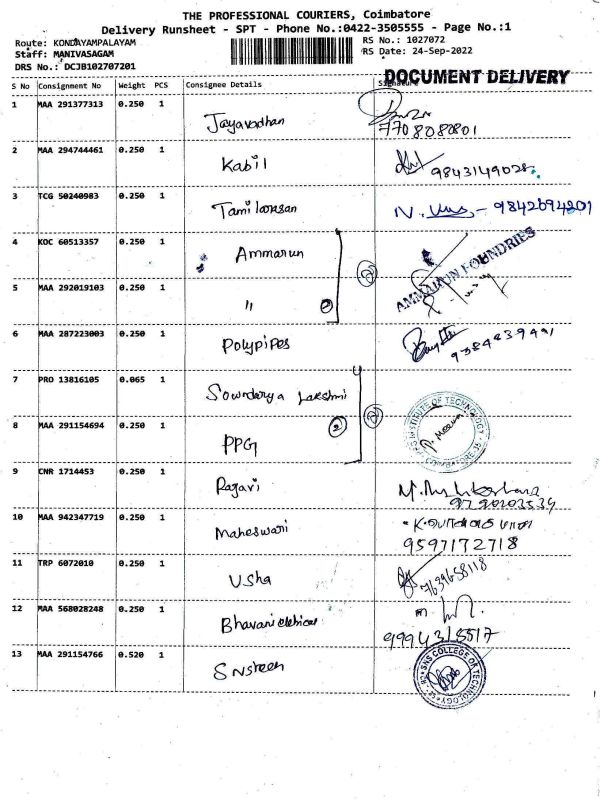 THE PROFESSIONAL COURIERS, Coimbatore
Delivery Runsheet - SPT - Phone No.:0422-3505555 - Page No.:1
Route: KONDAYAMPALAYAM
Staff: MANIVASAGAM
DRS No.: DCJB102707201
RS No.: 1027072
RS Date: 24-Sep-2022
DOCUMENT DELIVERY
S No Consignment No Weight PCS Consignee Details Signature
1 MAA 291377313 0.250 1
7708080801
2 MAA 294744461 0.250 1 Kabil 9843149028
3 TCG 50240983 0.250 1 Tamilarasan N. 9842694201
4 KOC 60513357 0.250 1 Ammarun
AMMARUN FOUNDRIES
5 MAA 292019103 0.250 1 " 2
6 MAA 287223003 0.250 1 Polypipes
7 PRO 13816105 0.065 1 Sowndarya Lakshmi
INSTITUTE OF TECHNOLOGY
COIMBATORE
8 MAA 291154694 0.250 1 PPG
9 CNR 1714453 0.250 1
10 MAA 942347719 0.250 1 Maheswari
9597172718
11 TRP 6072010 0.250 1 Usha 7639658118
12 MAA 568028248 0.250 1 Bhavani
9994318517
13 MAA 291154766 0.520 1
SNS COLLEGE OF TECHNOLOGY